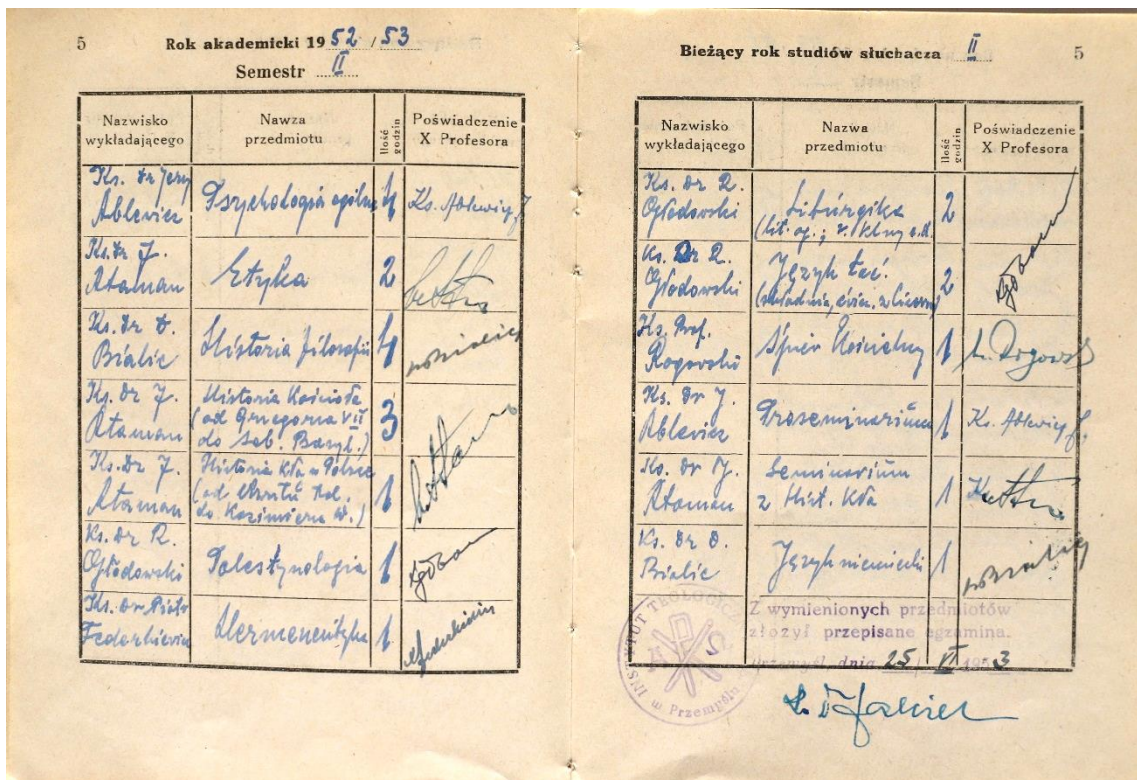 5 Rok akademicki 1952/53
Semestr II
Nazwisko wykładającego Nawza przedmiotu Ilość godzin Poświadczenie X Profesora
Ks. dr Jerzy Ablewicz Psychologia ogólna 4 Ks. Ablewicz J
Ks. dr J. Ataman Etyka 2
Ks. dr Bialic Historia filozofii 4
Ks. dr J. Ataman Historia Kościoła (od Grzegorza VII do Sob. Bazyl.) 3
Ks. Dr J. Ataman Historia Kła w Polsce (od do Kazimierza W.) 1
Ks. dr R. Głodowski Palestynologia 1
Ks. dr Piotr Federkiewicz Hermeneutyka 1
Bieżący rok studiów słuchacza II 5
Nazwisko wykładającego Nazwa przedmiotu Ilość godzin Poświadczenie X Profesora
Ks. dr R. Głodowski Liturgika 2
Ks. Dr R. Głodowski Język łać. 2
Ks. Prof. Rogowski Śpiew Kościelny 1
Ks. dr J. Ablewicz Proseminarium 1 Ks. Ablewicz J.
Ks. dr J. Ataman Seminarium z Hist. Kła 1
Ks. dr Bialic Język niemiecki 1
INSTYTUT TEOLOGICZ w Przemyślu
Z wymienionych przedmiotów
złożył przepisane egzamina.
Przemyśl, dnia 25 VI 1953